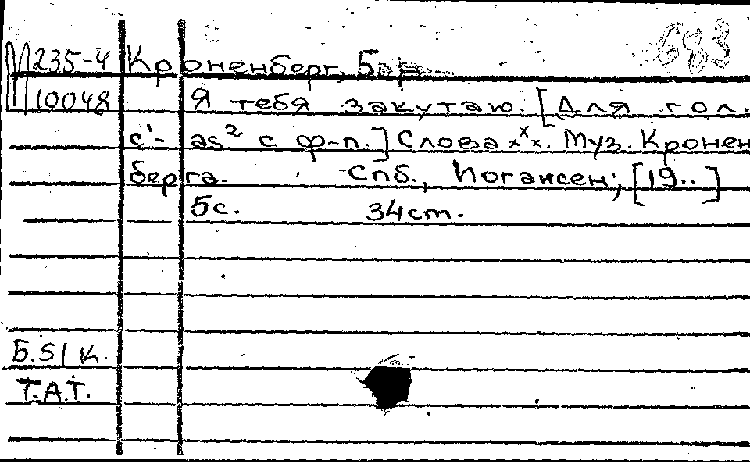 683
М 235-4 Кроненберг, Бор
10048 Я тебя закутаю. [Для гол.
c¹- as² с ф-п.] Слова xˣx. Муз. Кронен
берга. Спб., Иогансен, [19..]
5с. 34cm.
Б.S/к.
Т.А.Т.